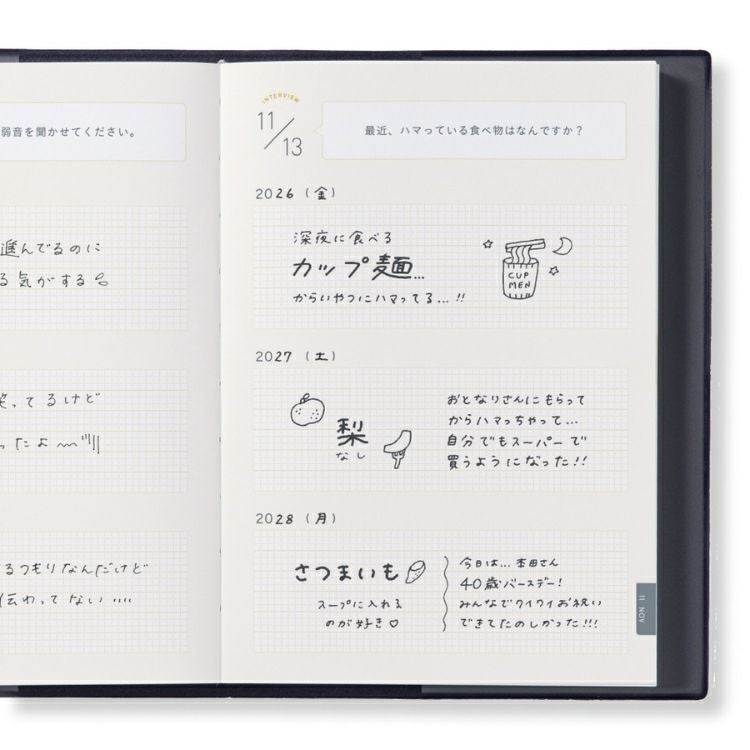 弱音を聞かせてください。
進んでるのに
る気がする
笑ってるけど
ったよ
るつもりなんだけど
伝わってない....
INTERVIEW
11/13
最近、ハマっている食べ物はなんですか？
2026（金）
深夜に食べる
カップ麺...
からいやつにハマってる...!!
CUP
MEN
2027（土）
梨
なし
おとなりさんにもらって
からハマっちゃって...
自分でもスーパーで
買うようになった!!
2028（月）
さつまいも
スープに入れる
のが好き♡
今日は...本田さん
40歳バースデー!
みんなでワイワイお祝い
できてたのしかった!!!
11 NOV